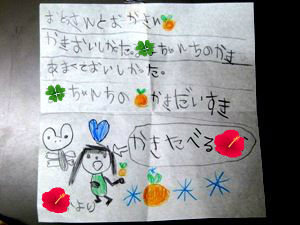 おとさんとおかさんへ
かきおいしかた。ちゃんちのかき
あまくておいしかった。
ちゃんちのかきだいすき
かきたべる
より